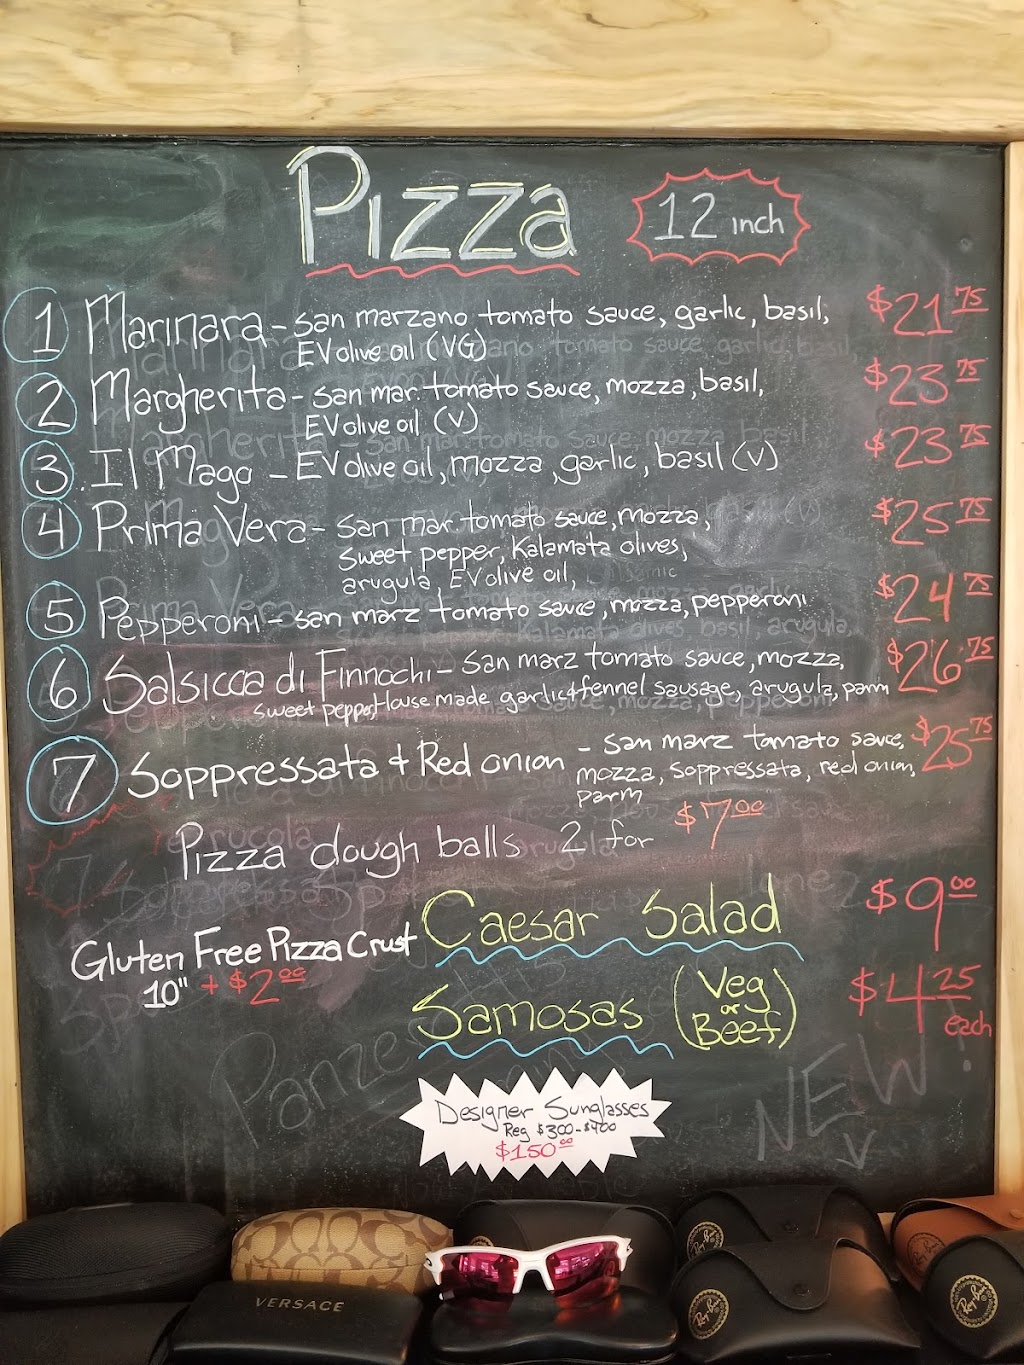 Pizza 12 inch
1 Marinara - san marzano tomato sauce, garlic, basil, $21 75
EV olive oil (VG)
2 Margherita - san mar. tomato sauce, mozza, basil, $23 75
EV olive oil (V)
3. Il Mago - EV olive oil, mozza, garlic, basil (V) $23 75
4 Prima Vera - san mar tomato sauce, mozza, $25 75
sweet pepper, Kalamata olives,
arugula, EV olive oil,
5 Pepperoni - san marz tomato sauce, mozza, pepperoni $24 75
6 Salsicca di Finnochi - san marz tomato sauce, mozza, $26 75
sweet pepper, House made garlic & fennel sausage, arugula, parm
7 Soppressata & Red onion - san marz tomato sauce, $25 75
mozza, soppressata, red onion,
parm
Pizza dough balls 2 for $7 00
Caesar Salad $9 00
Gluten Free Pizza Crust
10" + $2 00
Samosas (Veg or Beef) $4 25 each
NEW!
Designer Sunglasses
Reg $300-$400
$150 00
VERSACE
Ray-Ban
Ray-Ban
Ray-Ban